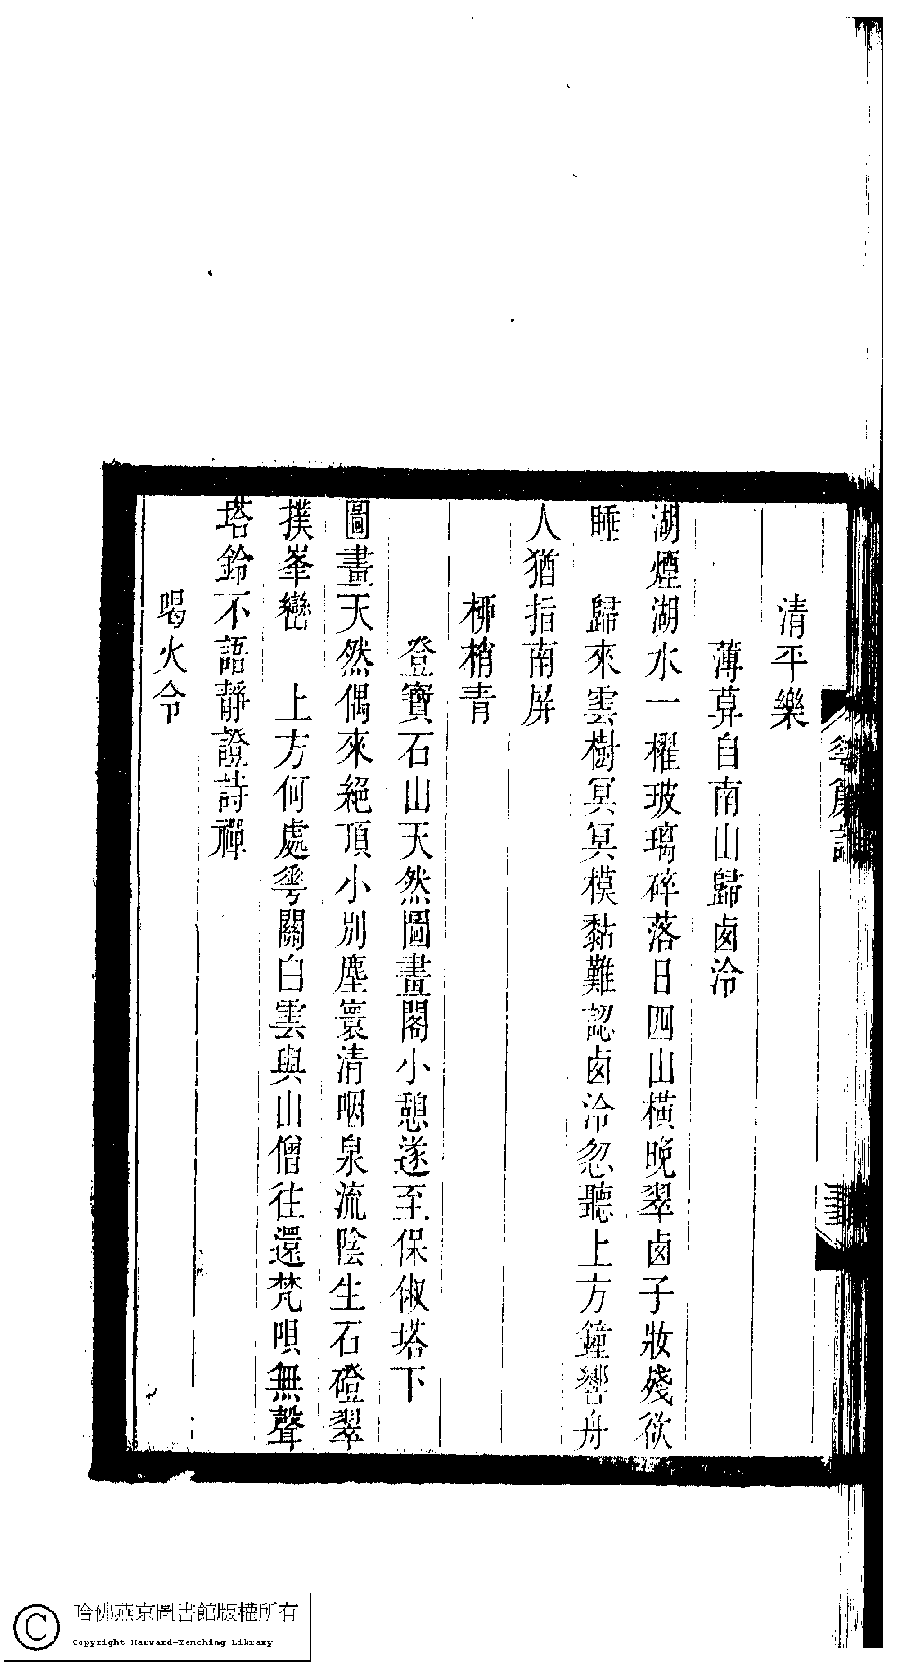 清平樂
薄莫自南山歸卥泠
湖煙湖水一櫂玻璃碎落日四山橫晚翠卥子妝殘欲
睡　歸來雲樹冥冥模黏難認卥泠忽聽上方鐘響舟
人猶指南屏
桺梢青
登寶石山天然圖畫閣小憩遂至保俶塔下
圖畫天然偶來絕頂小別塵寰清咽泉流陰生石磴翠
撲峯巒　上方何處𠌶關白雲與山僧往還梵唄無聲
塔鈴不語靜證詩禪
喝火令
𠌶簾詞
哈佛燕京圖書館版權所有
Copyright Harvard-Yenching Library